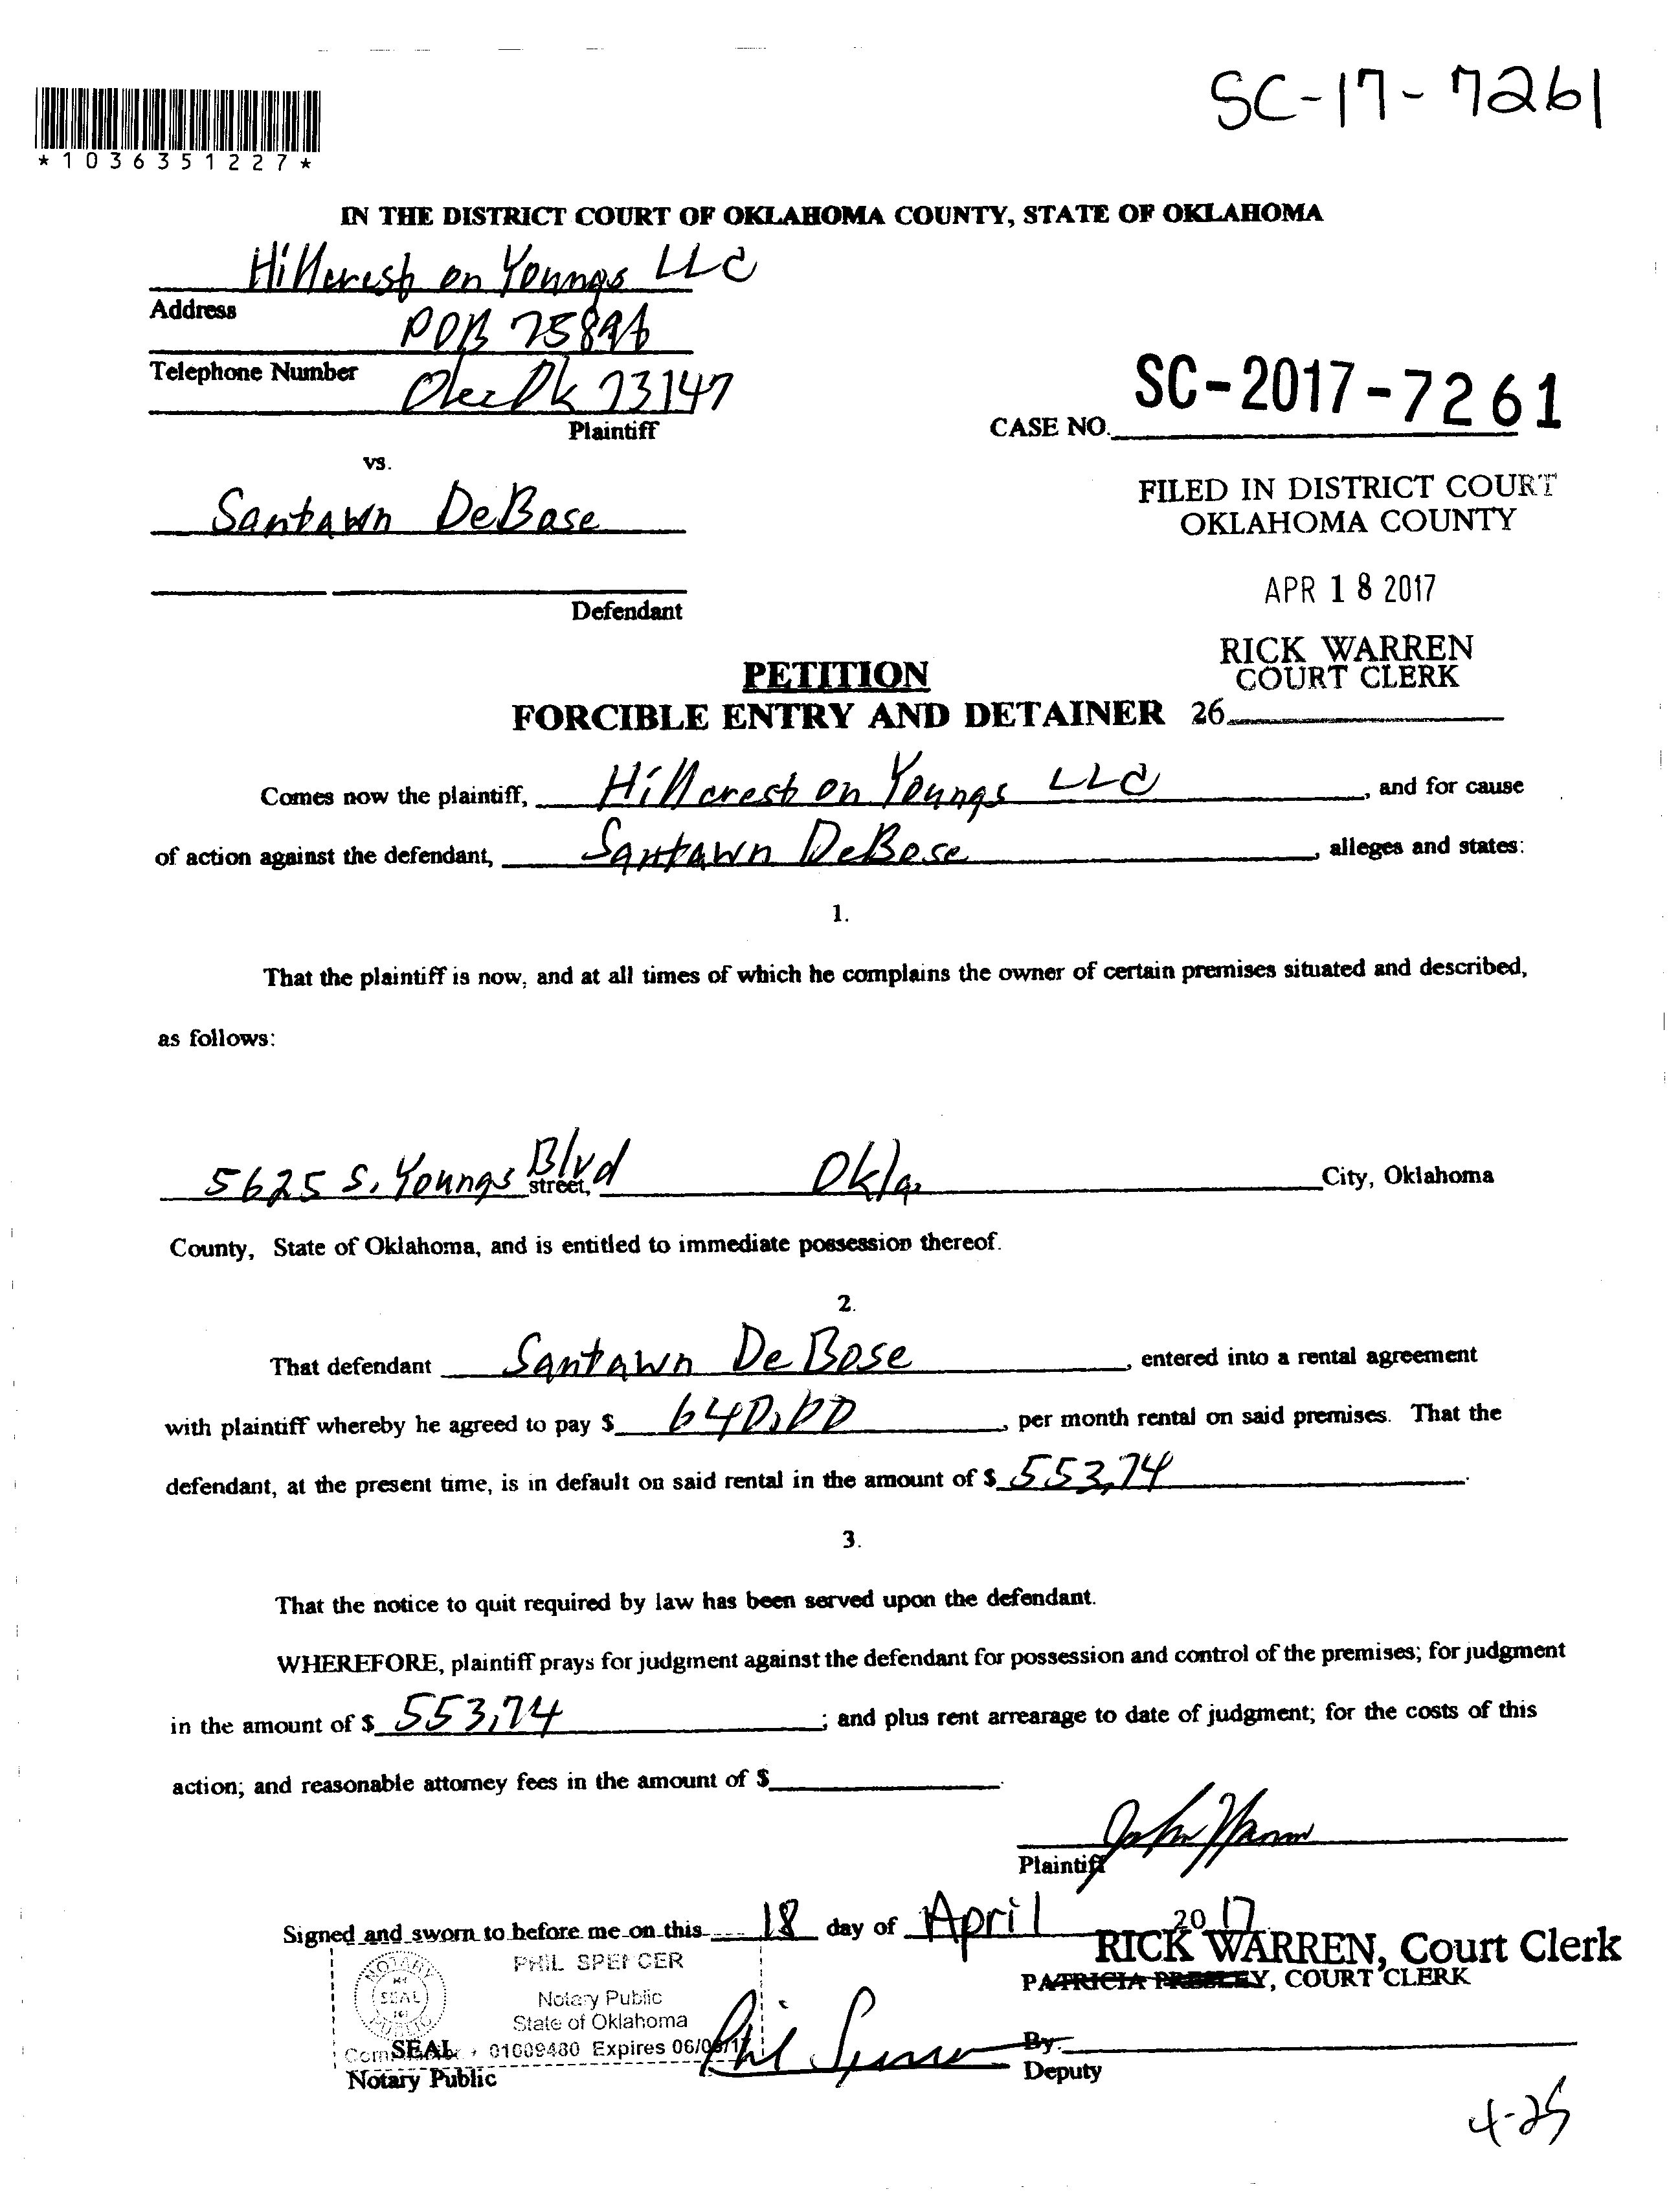 SC-17-7261
*1036351227*
IN THE DISTRICT COURT OF OKLAHOMA COUNTY, STATE OF OKLAHOMA
Hillcrest on Youngs LLC
Address
POB 75896
Telephone Number
Okc Ok 73147
Plaintiff
SC-2017-7261
CASE NO.
vs.
Santawn DeBose
FILED IN DISTRICT COURT
OKLAHOMA COUNTY
APR 18 2017
Defendant
RICK WARREN
COURT CLERK
PETITION
FORCIBLE ENTRY AND DETAINER 26
Comes now the plaintiff, Hillcrest on Youngs LLC, and for cause
of action against the defendant, Santawn DeBose, alleges and states:
1.
That the plaintiff is now, and at all times of which he complains the owner of certain premises situated and described,
as follows:
5625 S. Youngs Blvd street, Okla. City, Oklahoma
County, State of Oklahoma, and is entitled to immediate possession thereof.
2.
That defendant Santawn DeBose, entered into a rental agreement
with plaintiff whereby he agreed to pay $ 640.00, per month rental on said premises. That the
defendant, at the present time, is in default on said rental in the amount of $ 553.74.
3.
That the notice to quit required by law has been served upon the defendant.
WHEREFORE, plaintiff prays for judgment against the defendant for possession and control of the premises; for judgment
in the amount of $ 553.74; and plus rent arrearage to date of judgment; for the costs of this
action; and reasonable attorney fees in the amount of $.
John
Plaintiff
Signed and sworn to before me on this 18 day of April 2017
RICK WARREN, Court Clerk
PATRICIA PRESLEY, COURT CLERK
PHIL SPENCER
NOTARY SEAL PUBLIC
Notary Public
State of Oklahoma
SEAL 01009480 Expires 06/
Phil Spencer
By:
Notary Public
Deputy
4-25